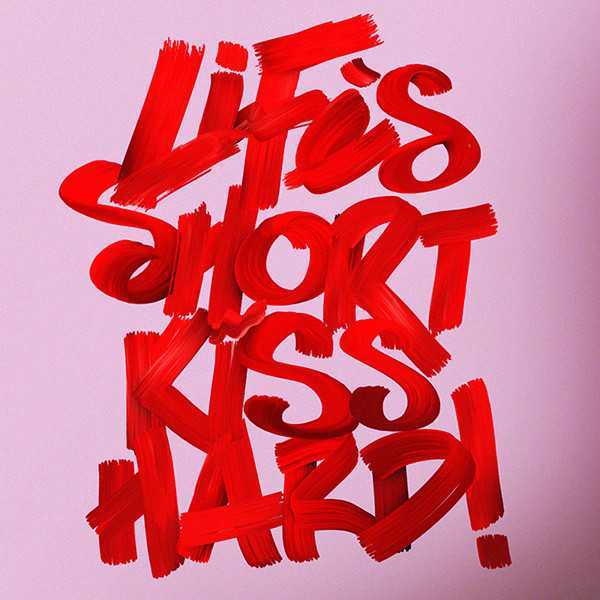 LiFe's
SHORT
KiSS
HARD!